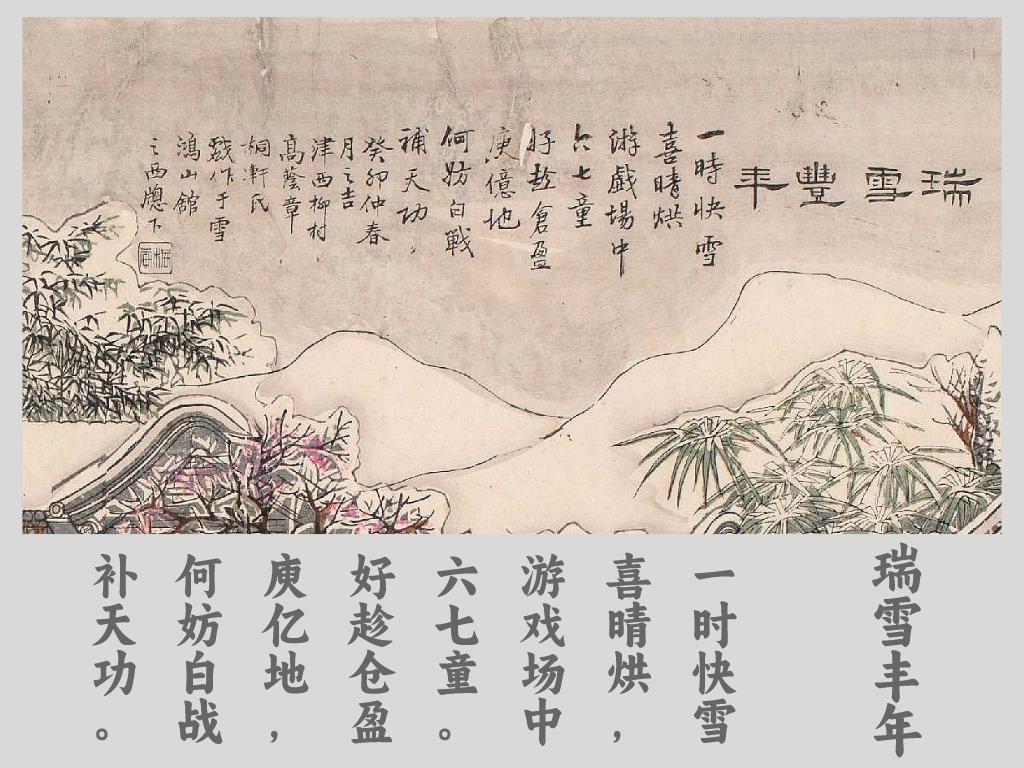 瑞雪豐年
一時快雪
喜晴烘
游戲場中
六七童
好趁倉盈
庚億地
何妨白戰
補天功，
癸卯仲春
月之吉
津西柳村
高蔭章，
桐軒氏
戲作于雪
鴻山館
之西牕下
瑞雪丰年
一时快雪
喜晴烘，
游戏场中
六七童。
好趁仓盈
庚亿地，
何妨白战
补天功。